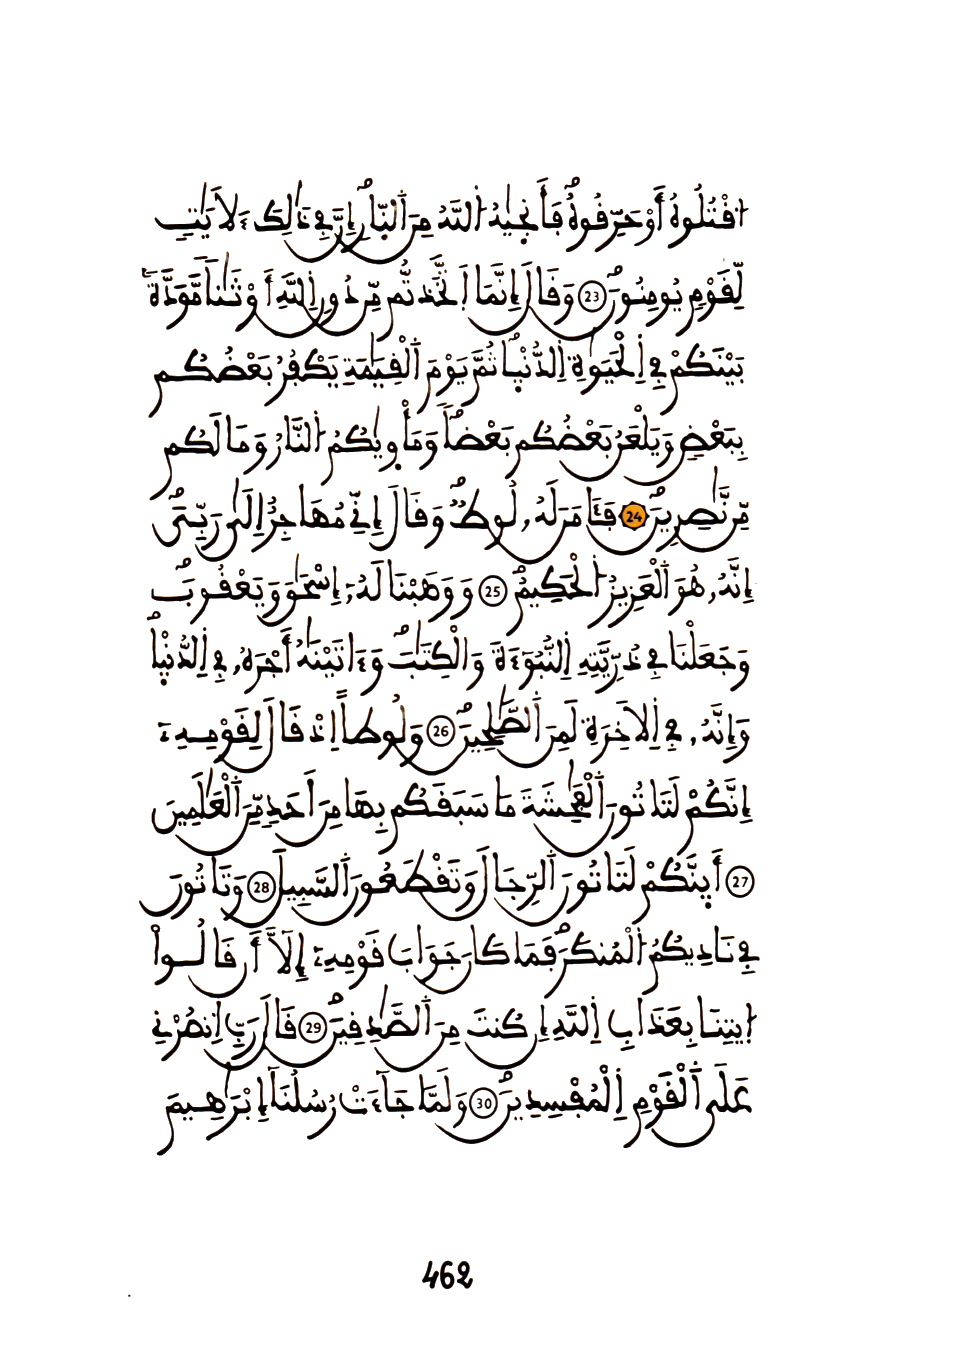 اُقْتُلُوهُ أَوْ حَرِّقُوهُ فَأَنج۪يٰهُ اُ۬للَّهُ مِنَ اَ۬لنّ۪ارِ إِنَّ فِے ذَٰلِكَ ءَلَايَٰتٖ
لِّقَوْمٖ يُومِنُونَ 23 وَقَالَ إِنَّمَا اَ۪تَّخَذتُّم مِّن دُونِ اِ۬للَّهِ أَوْثَٰناٗ مَّوَدَّةٗ
بَيْنَكُمْ فِے اِ۬لْحَيَوٰةِ اِ۬لدُّنْي۪ا ثُمَّ يَوْمَ اَ۬لْقِيَٰمَةِ يَكْفُرُ بَعْضُكُم
بِبَعْضٖ وَيَلْعَنُ بَعْضُكُم بَعْضاٗ وَمَأْو۪يٰكُمُ اُ۬لنَّارُ وَمَا لَكُم
مِّن نَّٰصِرِينَ 24 فَـَٔامَنَ لَهُۥ لُوطٞ وَقَالَ إِنِّے مُهَاجِرٌ إِلَىٰ رَبِّيَ
إِنَّهُۥ هُوَ اَ۬لْعَزِيزُ اُ۬لْحَكِيمُ 25 وَوَهَبْنَا لَهُۥٓ إِسْحَٰقَ وَيَعْقُوبَ
وَجَعَلْنَا فِے ذُرِّيَّتِهِ اِ۬لنُّبُوٓءَةَ وَالْكِتَٰبَ وَءَاتَيْنَٰهُ أَجْرَهُۥ فِے اِ۬لدُّنْي۪ا
وَإِنَّهُۥ فِے اِ۬لَاخِرَةِ لَمِنَ اَ۬لصَّٰلِحِينَ 26 وَلُوطاً اِذْ قَالَ لِقَوْمِهِۦٓ
إِنَّكُمْ لَتَاتُونَ اَ۬لْفَٰحِشَةَ مَا سَبَقَكُم بِهَا مِنَ اَحَدٖ مِّنَ اَ۬لْعَٰلَمِينَ
27 أَئِنَّكُمْ لَتَاتُونَ اَ۬لرِّجَالَ وَتَقْطَعُونَ اَ۬لسَّبِيلَ 28 وَتَاتُونَ
فِے نَادِيكُمُ اُ۬لْمُنكَرَ فَمَا كَانَ جَوَابَ قَوْمِهِۦٓ إِلَّآ أَن قَالُواْ
اُ۪يتِنَا بِعَذَابِ اِ۬للَّهِ إِن كُنتَ مِنَ اَ۬لصَّٰدِقِينَ 29 قَالَ رَبِّ اِ۟نصُرْنِے
عَلَى اَ۬لْقَوْمِ اِ۬لْمُفْسِدِينَ 30 وَلَمَّا جَآءَتْ رُسُلُنَآ إِبْرَٰهِيمَ
462